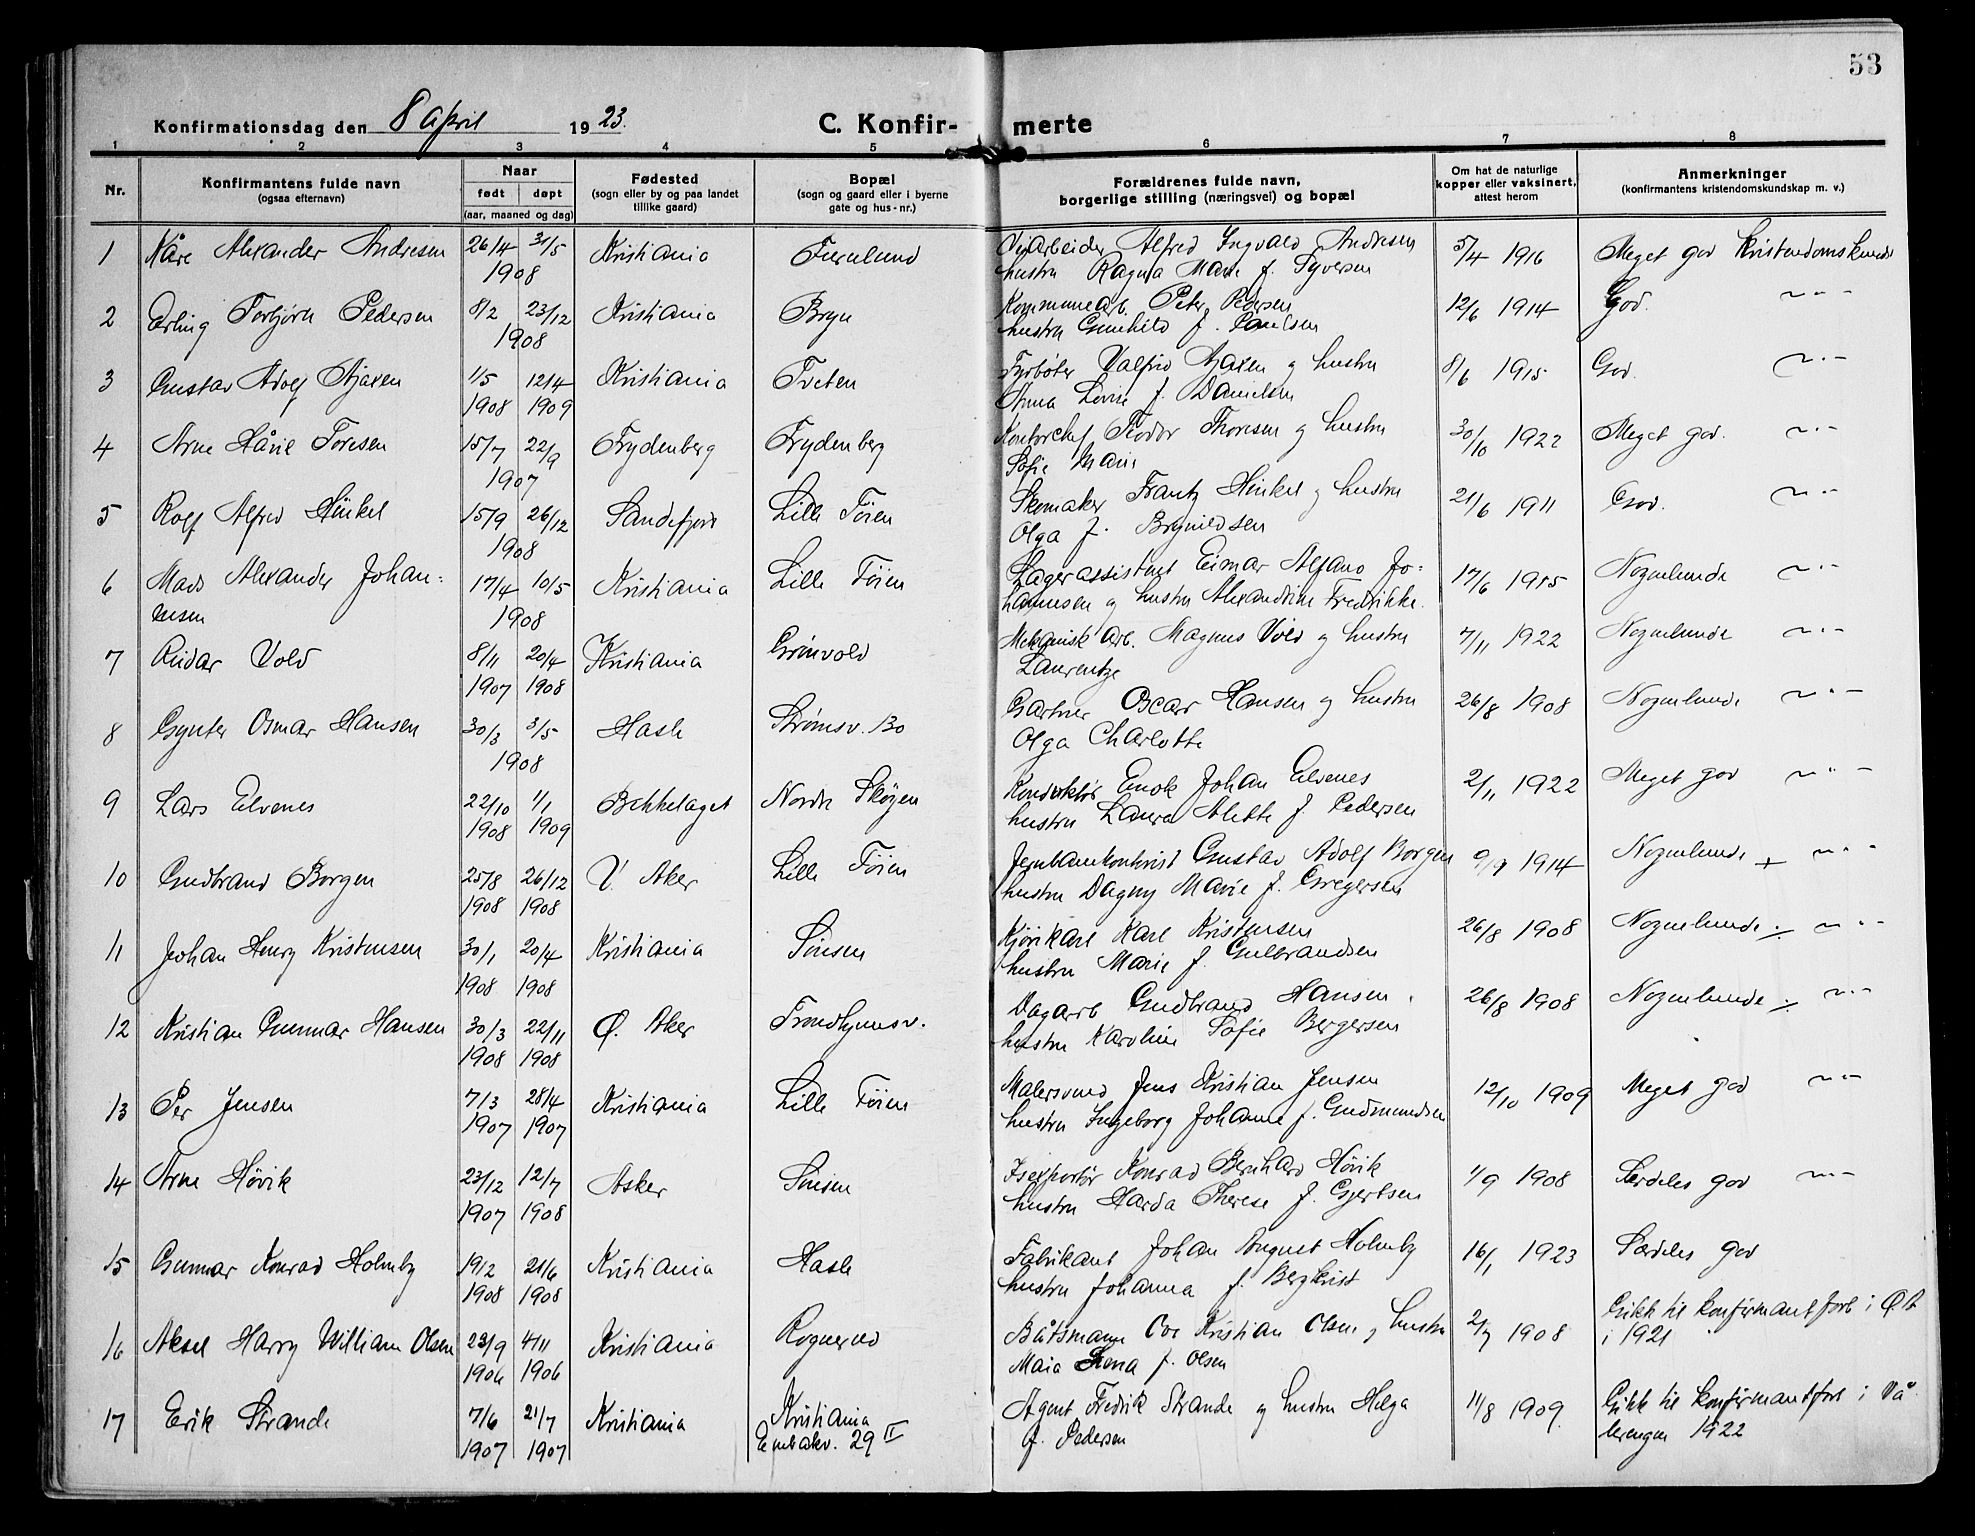 53
Konfirmationsdag den 8 April 1923.
C. Konfir- merte
1 2 3 4 5 6 7 8
Nr.
Konfirmantens fulde navn
(ogsaa efternavn)
Naar
født døpt
(aar, maaned og dag)
Fødested
(sogn eller by og paa landet
tillike gaard)
Bopæl
(sogn og gaard eller i byerne
gate og hus-nr.)
Forældrenes fulde navn,
borgerlige stilling (næringsvei) og bopæl
Om hat de naturlige
kopper eller vaksinert,
attest herom
Anmerkninger
(konfirmantens kristendomskundskap m. v.)
1 Kåre Alexander Andresen 26/4 31/5 Kristiania Furulund Alfred Ingvald Andresen 5/4 1916 Meget god Kristendomskunds
1908 hustru Ragna Marie f. Syversen
2 Erling Torbjørn Pedersen 8/2 23/12 Kristiania Bryn Kommunearb. Peter Pedersen 12/6 1914 God. ~ " -
1908 hustru Gunhild f. Paulsen
3 Gustav Adolf Ajaxen 1/5 12/4 Kristiania Tveten Fyrbøter Valfrid Ajaxen og hustru 8/6 1915 God. ~ " -
1908 1909 Anna Lovise f. Danielsen
4 Arne Håvil Toresen 15/7 22/9 Frydenberg Frydenberg Kontorchef Teodor Thoresen og hustru 30/10 1922 Meget god. ~ " -
1907 Sofie Marie
5 Rolf Alfred Hinkel 15/9 26/12 Sandefjord Lille Tøien Skomaker Frantz Hinkel og hustru 21/6 1911 God. ~ " -
1908 Olga f. Brynildsen
6 Mads Alexander Johan= 17/4 10/5 Kristiania Lille Tøien Lagerassistent Eimar Alfano Jo= 17/6 1915 Nogenlunde ~ " -
nesen 1908 hannesen og hustru Alexandrine Fredrikke.
7 Reidar Vold 8/11 20/4 Kristiania Grønvold Mekanisk arb. Magnus Vold og hustru 7/11 1922 Nogenlunde ~ " -
1907 1908 Laurentze
8 Gynter Osmar Hansen 30/3 3/5 Hasle Strømsv. 130 Gartner Oscar Hansen og hustru 26/8 1908 Nogenlunde ~ " -
1908 Olga Charlotte
9 Lars Elvenes 22/10 1/1 Bekkelaget Nordre Skøyen Konduktør Enok Johan Elvenes 2/11 1922 Meget god ~ " -
1908 1909 hustru Laura Alette f. Pedersen
10 Gudbrand Borgen 25/8 26/12 V. Aker Lille Tøien Jernbanekontorist Gustav Adolf Borgen 9/9 1914 Nogenlunde + ~ " -
1908 1908 hustru Dagny Marie f. Gregersen
11 Johan Henry Kristensen 30/1 20/4 Kristiania Sinsen Kjørekarl Karl Kristensen 26/8 1908 Nogenlunde ÷ ~ " -
1908 1908 hustru Marie f. Gulbrandsen
12 Kristian Gunnar Hansen 30/3 22/11 Ø. Aker Trondhjemsv. Dagarb Gudbrand Hansen. 26/8 1908 Nogenlunde ÷ ~ " -
1908 1908 hustru Karoline Sofie Bergersen
13 Per Jensen 7/3 28/4 Kristiania Lille Tøien Malersvend Jens Kristian Jensen 12/10 1909 Meget god ~ " -
1907 1907 hustru Ingeborg Johanne f. Gudmundsen
14 Arne Høvik 23/12 12/7 Asker Sinsen Isexportør Konrad Bernhard Høvik 1/9 1908 Særdeles god ~ " -
1907 1908 hustru Harda Therese f. Gjertsen
15 Gunnar Konrad Holmby 19/2 21/6 Kristiania Hasle Fabrikant Johan August Holmby 16/1 1923 Særdeles god
1908 1908 hustru Johanna f. Bergkvist
16 Aksel Harry William Olsen 23/9 4/11 Kristiania Rognerud Båtsmann Ove Kristian Olsen og hustru 2/7 1908 Gikk til konfirmantforb i Ø.A
1906 1906 Maia Lena f. Olsen i 1921
17 Erik Strande 7/6 21/7 Kristiania Kristiania Agent Fredrik Strande og hustru Helga 11/8 1909 Gikk til konfirmantforb i Vå
1907 1907 29 II f. Pedersen lerengen 1922